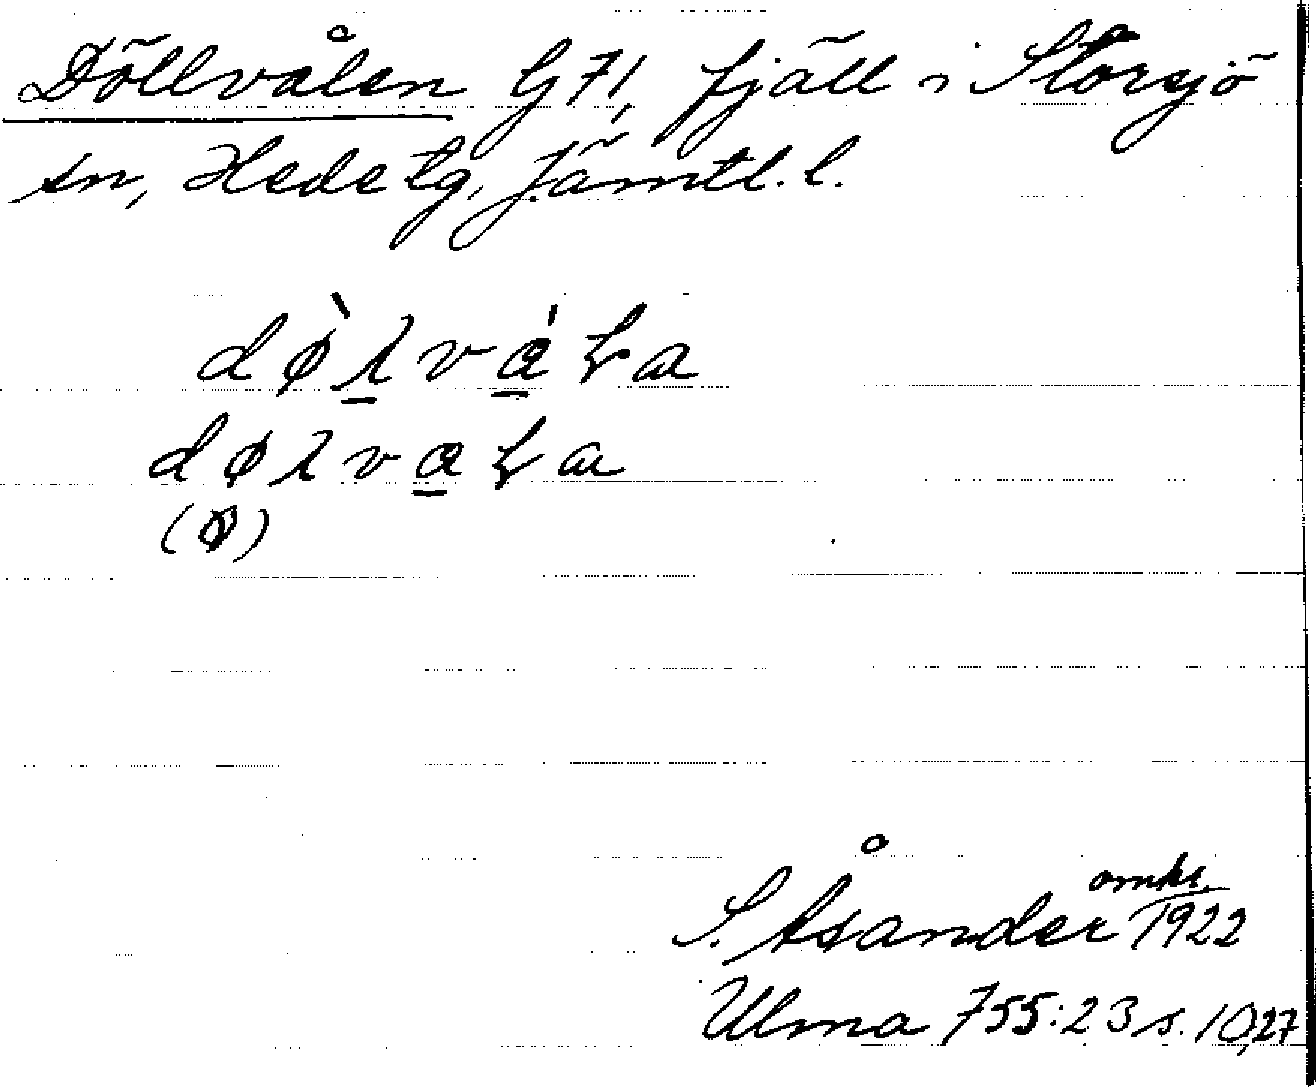 Döllvålen G 71, fjäll i Storsjö
sn, Hede tg, Jämtl. l.
S. Åsander omkr. 1922
Ulma 755:23 s. 10,27